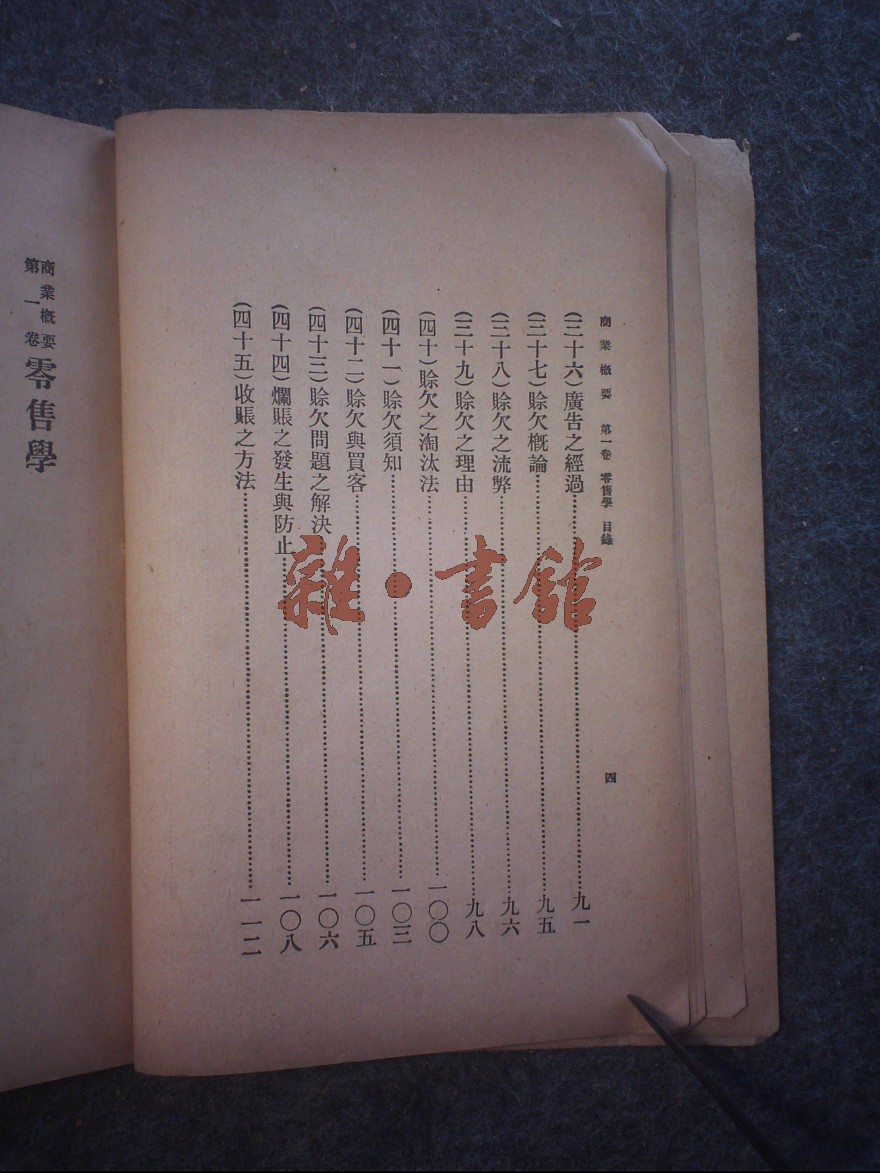 商業概要 第一卷 零售學 目錄
四
(三十六)廣告之經過……九一
(三十七)賒欠概論……九五
(三十八)賒欠之流弊……九六
(三十九)賒欠之理由……九八
(四十)賒欠之淘汰法……一〇〇
(四十一)賒欠須知……一〇三
(四十二)賒欠與買客……一〇五
(四十三)賒欠問題之解決……一〇六
(四十四)爛賬之發生與防止……一〇八
(四十五)收賬之方法……一一二
商業概要
第一卷
零售學
雜·書館